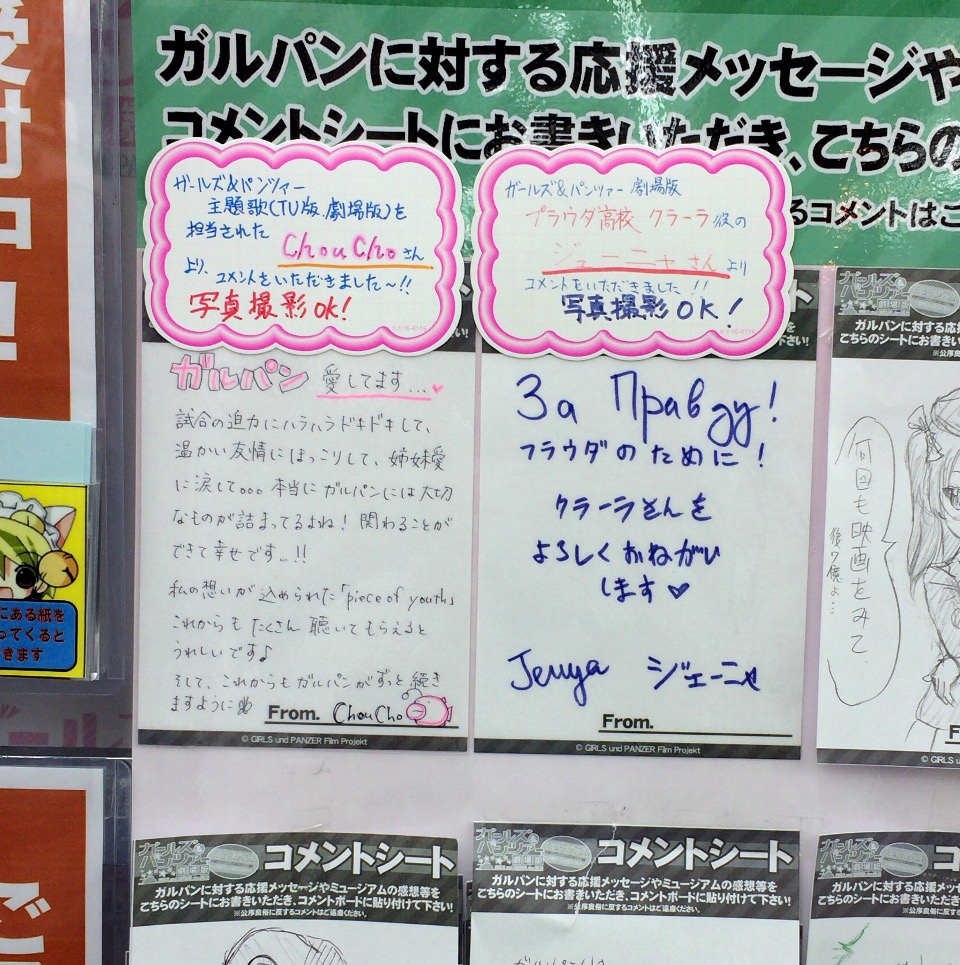 受付中
ガルパンに対する応援メッセージや
コメントシートにお書きいただき、こちらの
るコメントはこ
ガールズ&パンツァー
主題歌(TV版.劇場版)を
担当された ChouChoさん
より、
コメントをいただきました〜!!
写真撮影OK!
ガールズ&パンツァー 劇場版
プラウダ高校 クラーラ役の
ジェーニャさんより
コメントをいただきました!!
写真撮影OK!
ガルパン 愛してます...♥
試合の迫力にハラハラドキドキして、
温かい友情にほっこりして、姉妹愛
に涙して。。。本当にガルパンには大切
なものが詰まってるよね!関わることが
できて幸せです...!!
私の想いが込められた「piece of youth」
これからもたくさん聴いてもらえると
うれしいです♪
そして、これからもガルパンがずっと続き
ますように
From. ChouCho
© GIRLS und PANZER Film Projekt
За Правду!
プラウダのために!
クラーラさんを
よろしくおねがい
します♡
Jenya ジェーニャ
From.
© GIRLS und PANZER Film Projekt
ント
ガールズ&パンツァー
劇場版
ガルパンに対する応
こちらのシートにお書き
※公序良
何回も映画をみて
後7億よ...
F
© GIRLS und PAN
にある紙を
ってくると
きます
ガールズ&パンツァー
劇場版
コメントシート
ガルパンに対する応援メッセージやミュージアムの感想等を
こちらのシートにお書きいただき、コメントボードに貼り付けて下さい!
※公序良俗に反するコメントはご遠慮ください。
ガールズ&パンツァー
劇場版
コメントシート
ガルパンに対する応援メッセージやミュージアムの感想等を
こちらのシートにお書きいただき、コメントボードに貼り付けて下さい!
※公序良俗に反するコメントはご遠慮ください。
ガールズ&パンツァー
劇場版
コ
ガルパンに対する応援メッセ
こちらのシートにお書きいただき
※公序良俗に反する
ご